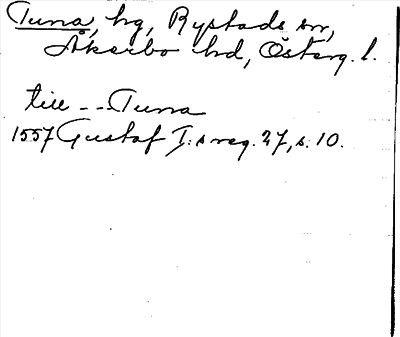 Tuna, hg, Rystads sn,
Åkerbo hd, Österg. l.
till -- Tuna
1557 Gustaf I:s reg. 27, s. 10.